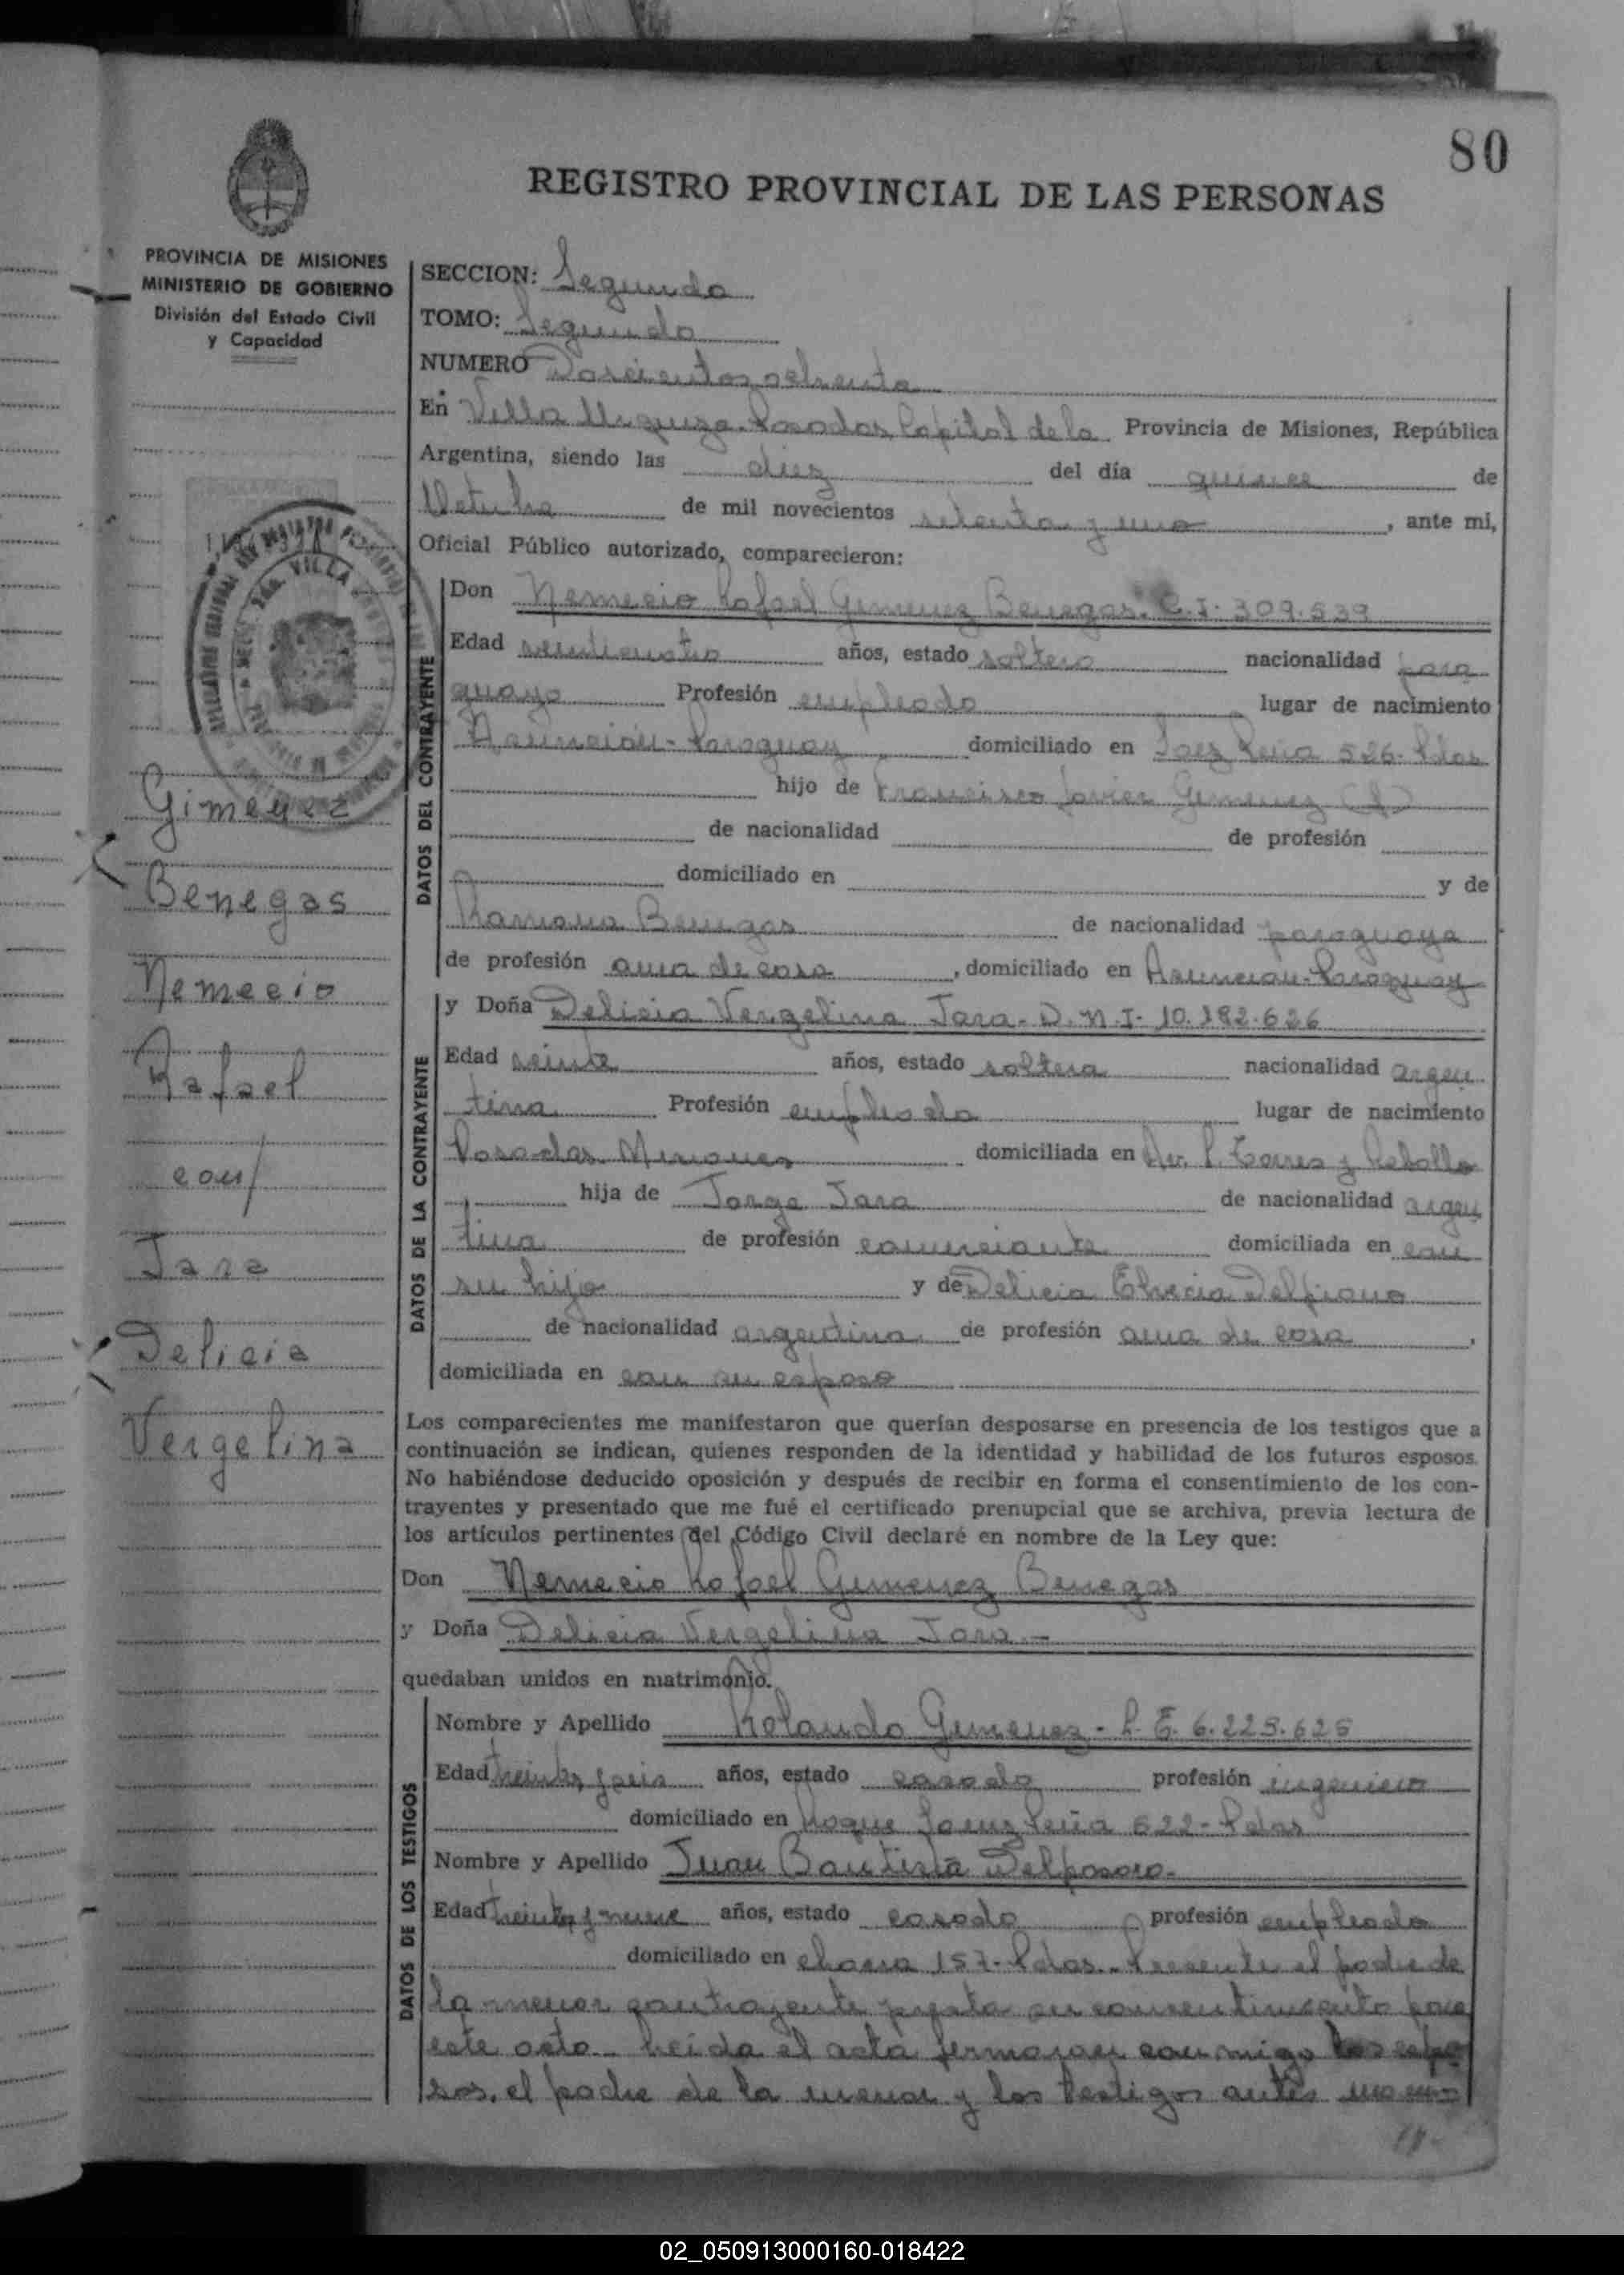 80
REGISTRO PROVINCIAL DE LAS PERSONAS
PROVINCIA DE MISIONES
MINISTERIO DE GOBIERNO
División del Estado Civil
y Capacidad
SECCION: Segunda
TOMO: Segundo
NUMERO Doscientos ochenta
En Villa Urquiza. Posadas Capital de la Provincia de Misiones, República
Argentina, siendo las diez del día quince de
Octubre de mil novecientos setenta y uno, ante mi,
Oficial Público autorizado, comparecieron:
DATOS DEL CONTRAYENTE
Don Nemecio Rafael Gimenez Benegas. C.I. 309.539
Edad veinticuatro años, estado soltero nacionalidad para
guayo Profesión empleado lugar de nacimiento
Asunción-Paraguay domiciliado en Saez Peña 526-Pdas
hijo de Francisco Javier Gimenez (f)
de nacionalidad de profesión
domiciliado en y de
Ramona Benegas de nacionalidad paraguaya
de profesión ama de casa, domiciliado en Asunción-Paraguay
DATOS DE LA CONTRAYENTE
y Doña Delicia Vergelina Jara- D.N.I- 10.182.626
Edad veinte años, estado soltera nacionalidad argen
tina Profesión empleada lugar de nacimiento
Posadas Misiones domiciliada en Av. P. Torres y Rebollo
hija de Jorge Jara de nacionalidad argen
tina de profesión comerciante domiciliada en con
su hija y de Delicia Delfiano
de nacionalidad argentina de profesión ama de casa,
domiciliada en con su esposo
Los comparecientes me manifestaron que querían desposarse en presencia de los testigos que a
continuación se indican, quienes responden de la identidad y habilidad de los futuros esposos.
No habiéndose deducido oposición y después de recibir en forma el consentimiento de los con-
trayentes y presentado que me fué el certificado prenupcial que se archiva, previa lectura de
los artículos pertinentes del Código Civil declaré en nombre de la Ley que:
Don Nemecio Rafael Gimenez Benegas
y Doña Delicia Vergelina Jara.-
quedaban unidos en matrimonio.
DATOS DE LOS TESTIGOS
Nombre y Apellido Rolando Gimenez- L.E. 6.225.625
Edad treinta y seis años, estado casado profesión ingeniero
domiciliado en Roque Saenz Peña 622-Pdas
Nombre y Apellido Juan Bautista
Edad treinta y nueve años, estado casado profesión empleado
domiciliado en chacra 157-Pdas.- Presente el padre de
la menor contrayente presta su consentimiento para
este acto.- Leida el acta firmaron conmigo los espo
sos, el padre de la menor y los testigos antes
Gimenez
Benegas
Nemecio
Rafael
con/
Jara
Delicia
Vergelina
02_050913000160-018422